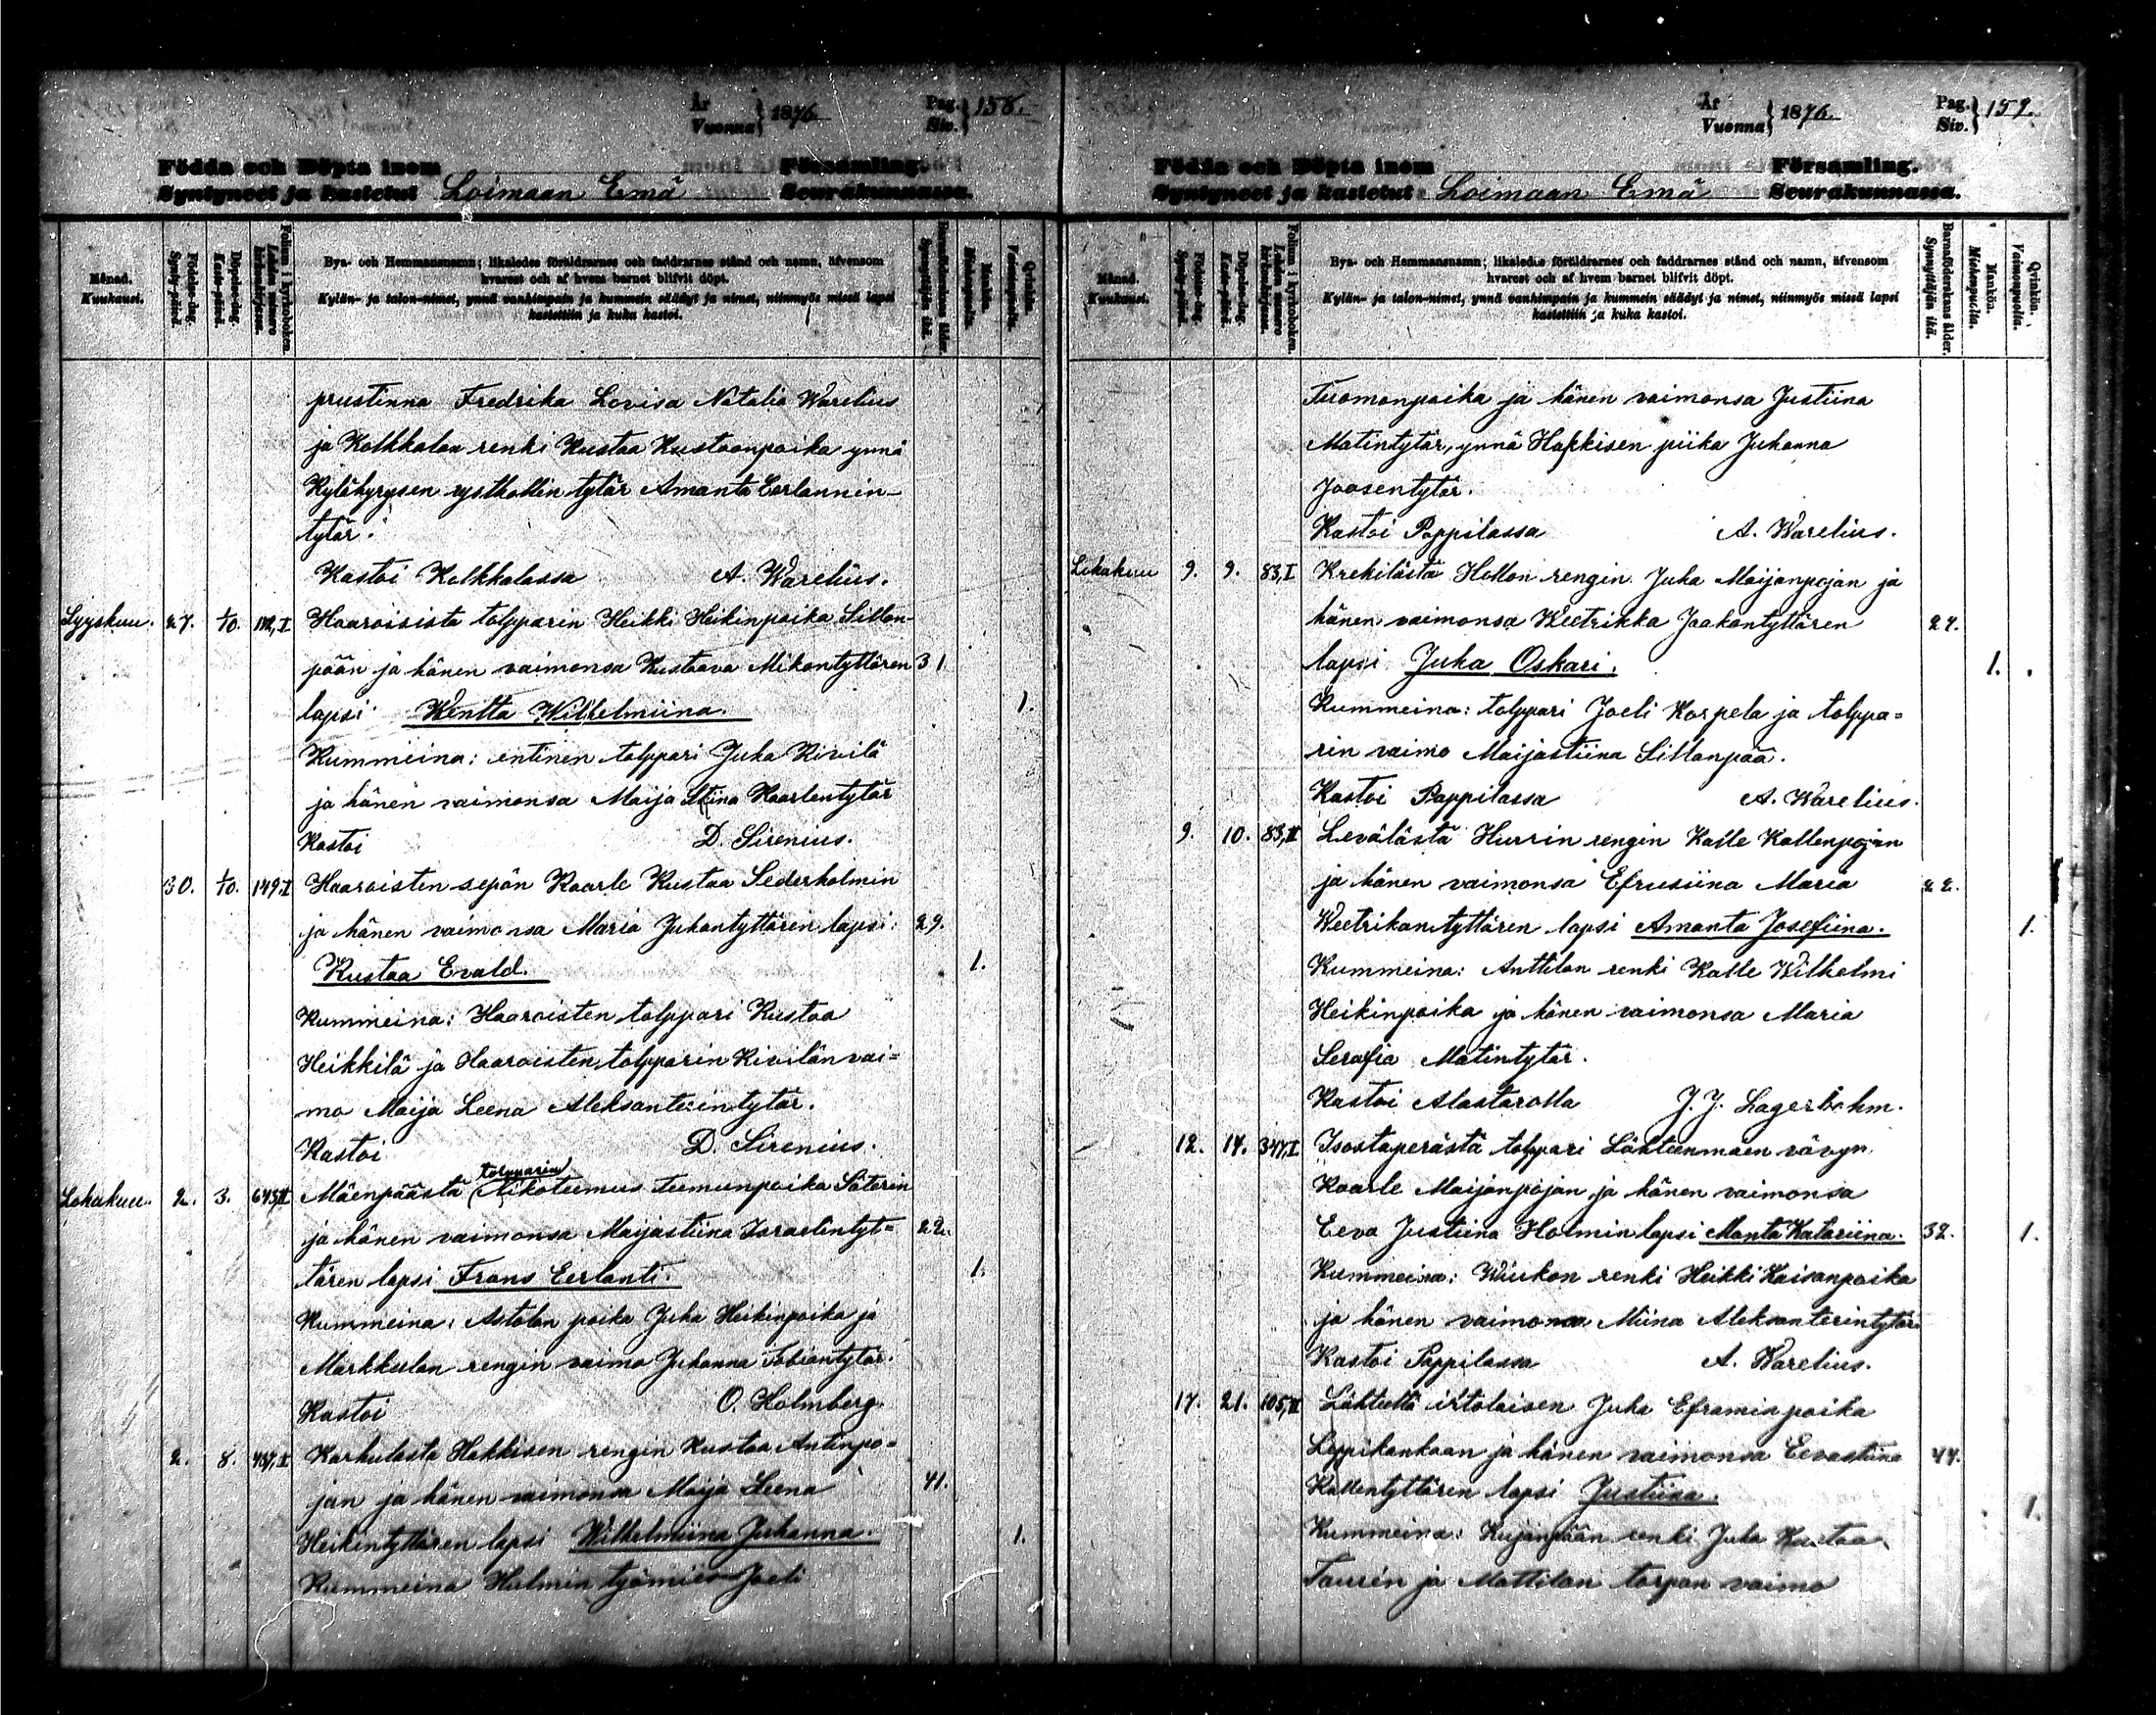 År
Vuonna } 1876. Pag.
Siv. } 158.
Födda och Döpta inom Församling.
Syntyneet ja kastetut Loimaan Emä Seurakunnassa.
Månad.
Kuukausi.
Födelse-dag.
Synty-päivä.
Döpelse-dag.
Kaste-päivä.
Folium i kyrkoboken.
Lehden numero kirkonkirjassa.
Bys- och Hemmansnamn; likaledes föräldrarnes och faddrarnes stånd och namn, äfvensom
hvarest och af hvem barnet blifvit döpt.
Kylän- ja talon-nimet, ynnä vanhimpain ja kummein säädyt ja nimet, niinmyös missä lapsi
kastettiin ja kuka kastoi.
Barnaföderskans ålder.
Synnyttäjän ikä.
Mankön.
Miehenpuolia.
Qvinkön.
Vaimonpuolia.
prustinna Fredrika Lovisa Natalia Warelius
ja Kolkkalan renki Kustaa Kustaanpoika ynnä
Kyläkyrysen rystkollin tytär Amanta Eerlannin-
tytär.
Kastoi Kolkkalassa A. Warelius.
Syyskuu. 27. 1/10. I Haaroisista tolpparin Heikki Heikinpoika Sillan-
pään ja hänen vaimonsa Kustaava Mikontyttären 31
lapsi Wentta Wilhelmiina. 1.
Kummeina: entinen tolppari Juha Kivilä
ja hänen vaimonsa Maija Stiina Kaarlentytär
Kastoi D. Sirenius.
30. 1/10. 149,I Haaroisten sepän Kaarle Kustaa Sederholmin
ja hänen vaimonsa Maria Juhantyttären lapsi: 29.
Kustaa Evald. 1.
Kummeina: Haaroisten tolppari Kustaa
Heikkilä ja Haaroisten tolpparin Kivilän vai=
mo Maija Leena Aleksanterintytär.
Kastoi D. Sirenius.
tolpparin
Lokakuu. 2. 3. 643,II Mäenpäästä Nikoteemus Teemunpoika Säterin
ja hänen vaimonsa Maijastiina Israelintyt= 22.
tären lapsi Frans Eerlanti. 1.
Kummeina: Astolan poika Juha Heikinpoika ja
Markkulan rengin vaimo Juhanna Tobiantytär.
Kastoi O. Holmberg.
2. 8. 487,I Karhulasta Hakkisen rengin Kustaa Antinpo=
jan ja hänen vaimonsa Maija Leena 41.
Heikintyttären lapsi Wilhelmiina Juhanna. 1.
Kummeina Hulmin työmies Joeli
År
Vuonna } 1876. Pag.
Siv. } 159.
Födda och Döpta inom Församling.
Syntyneet ja kastetut Loimaan Emä Seurakunnassa.
Månad.
Kuukausi.
Födelse-dag.
Synty-päivä.
Döpelse-dag.
Kaste-päivä.
Folium i kyrkoboken.
Lehden numero kirkonkirjassa.
Bys- och Hemmansnamn; likaledes föräldrarnes och faddrarnes stånd och namn, äfvensom
hvarest och af hvem barnet blifvit döpt.
Kylän- ja talon-nimet, ynnä vanhimpain ja kummein säädyt ja nimet, niinmyös missä lapsi
kastettiin ja kuka kastoi.
Barnaföderskans ålder.
Synnyttäjän ikä.
Mankön.
Miehenpuolia.
Qvinkön.
Vaimonpuolia.
Tuomanpoika ja hänen vaimonsa Justiina
Matintytär, ynnä Hakkisen piika Juhanna
Joosentytär.
Kastoi Pappilassa A. Warelius.
Lokakuu 9. 9. 83,I Krekilästä Hollon rengin Juha Maijanpojan ja
hänen vaimonsa Weetrikka Jaakontyttären 27.
lapsi Juha Oskari. 1.
Kummeina: tolppari Joeli Korpela ja tolppa=
rin vaimo Maijastiina Sillanpää.
Kastoi Pappilassa A. Warelius.
9. 10. 83,II Levälästä Hurrin rengin Kalle Kallenpojan
ja hänen vaimonsa Efrusiina Maria 22.
Weetrikantyttären lapsi Amanta Josefiina. 1.
Kummeina: Anttilan renki Kalle Wilhelmi
Heikinpoika ja hänen vaimonsa Maria
Serafia Matintytär.
Kastoi Alastarolla J. J. Lagerbohm.
12. 14. 347,I Isostaperästä tolppari Lähteenmäen vävyn
Kaarle Maijanpojan ja hänen vaimonsa
Eeva Justiina Holmin lapsi Manta Katariina. 32. 1.
Kummeina: Wiukon renki Heikki Kaisanpoika
ja hänen vaimonsa Miina Aleksanterintytär.
Kastoi Pappilassa A. Warelius.
17. 21. 105,II Lähteeltä irtolaisen Juha Eframinpoika
Leppikankaan ja hänen vaimonsa Eevastiina 44.
Kallentyttären lapsi Justiina. 1.
Kummeina: Kujanpään renki Juha Kustaa
Taurén ja Mattilan torpan vaimo